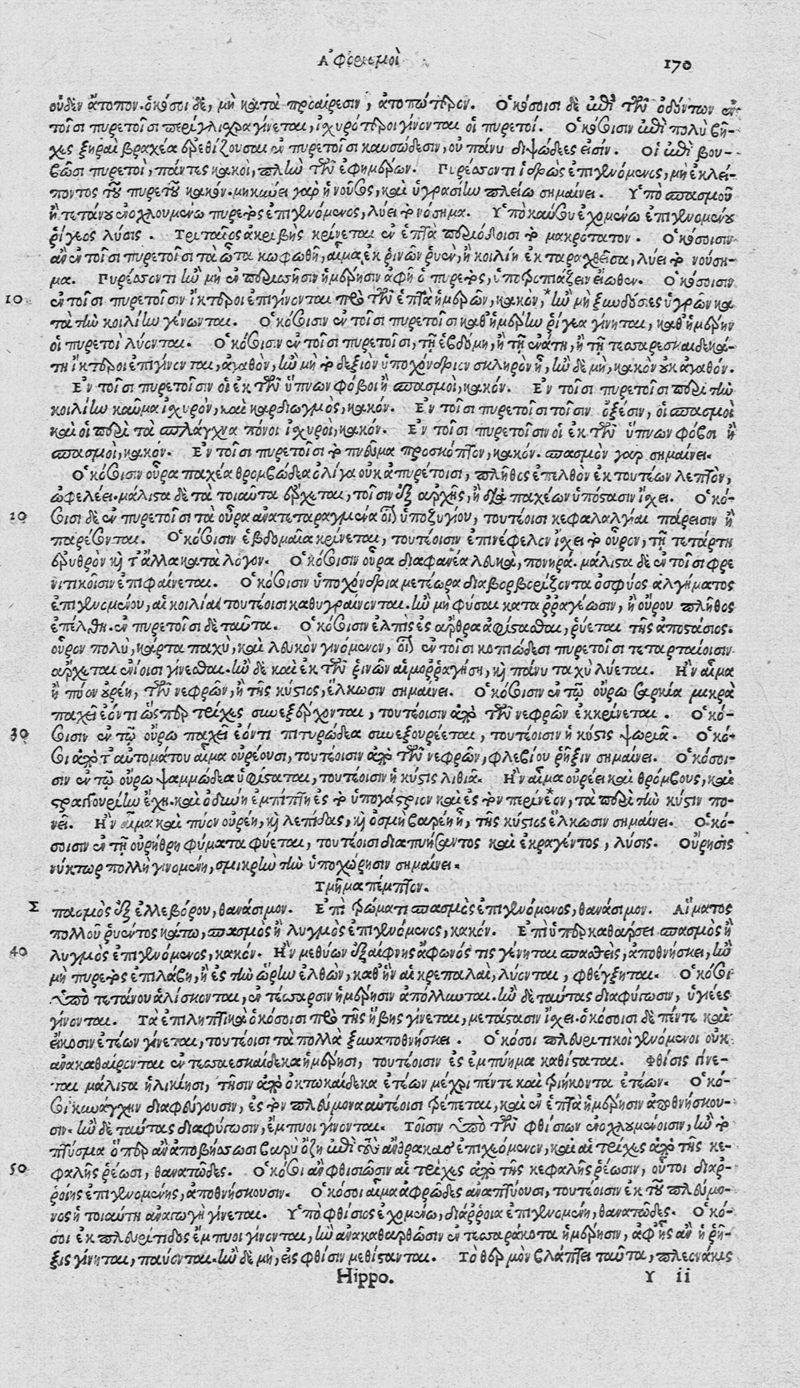 Ἀφορισμοὶ 170
οὐδὲν ἄτοπον. ὁκόσοι δὲ, μὴ κατὰ προαίρεσιν, ἀτοπώτερον. Ὁκόσοισι δὲ ἐπὶ τῶν ὀδόντων ἐν
τοῖσι πυρετοῖσι περίγλισχρα γίνεται, ἰσχυρότεροι γίνονται οἱ πυρετοί. Ὁκόσοισιν ἐπὶ πολὺ βῆ-
χες ξηραὶ βραχέα ἐρεθίζουσαι ἐν πυρετοῖσι καυσώδεσιν, οὐ πάνυ διψώδεές εἰσιν. Οἱ ἐπὶ βου-
βῶσι πυρετοὶ, πάντες κακοὶ, πλὴν τῶν ἐφημέρων. Πυρέσσοντι ἱδρὼς ἐπιγενόμενος, μὴ ἐκλεί-
ποντος τοῦ πυρετοῦ κακόν. μηκύνει γὰρ ἡ νοῦσος, καὶ ὑγρασίην πλείω σημαίνει. Ὑπὸ σπασμοῦ
ἢ τετάνου ἐνοχλουμένω πυρετὸς ἐπιγενόμενος, λύει τὸ νόσημα. Ὑπὸ καύσου ἐχομένω ἐπιγενομένου
ῥίγεος λύσις. Τριταῖος ἀκριβὴς κρίνεται ἐν ἑπτὰ περιόδοισι τὸ μακρότατον. Ὁκόσοισιν
ἂν ἐν τοῖσι πυρετοῖσι τὰ ὦτα κωφωθῇ, αἷμα ἐκ ῥινῶν ῥυὲν, ἢ κοιλίη ἐκταραχθεῖσα, λύει τὸ νούση-
μα. Πυρέσσοντι ἢν μὴ ἐν περισσῇσιν ἡμέρησιν ἀφῇ ὁ πυρετὸς, ὑποτροπιάζειν εἴωθεν. Ὁκόσοισιν
10 ἐν τοῖσι πυρετοῖσιν ἴκτεροι ἐπιγίνονται πρὸ τῶν ἑπτὰ ἡμερῶν, κακὸν, ἢν μὴ ξυνδόσιες ὑγρῶν κα
τὰ τὴν κοιλίην γένωνται. Ὁκόσοισιν ἐν τοῖσι πυρετοῖσι καθ' ἡμέρην ῥίγεα γίνεται, καθ' ἡμέρην
οἱ πυρετοὶ λύονται. Ὁκόσοισιν ἐν τοῖσι πυρετοῖσι, τῇ ἑβδόμῃ, ἢ τῇ ἐνάτῃ, ἢ τῇ τεσσαρεσκαιδεκά-
τῃ ἴκτεροι ἐπιγίνονται, ἀγαθὸν, ἢν μὴ τὸ δεξιὸν ὑποχόνδριον σκληρὸν ᾖ, ἢν δὲ μὴ, κακὸν οὐκ ἀγαθόν.
Ἐν τοῖσι πυρετοῖσιν οἱ ἐκ τῶν ὕπνων φόβοι ἢ σπασμοὶ, κακόν. Ἐν τοῖσι πυρετοῖσι περὶ τὴν
κοιλίην καῦμα ἰσχυρὸν, καὶ καρδιωγμὸς, κακόν. Ἐν τοῖσι πυρετοῖσι τοῖσιν ὀξέσιν, οἱ σπασμοὶ
καὶ οἱ περὶ τὰ σπλάγχνα πόνοι ἰσχυροὶ, κακόν. Ἐν τοῖσι πυρετοῖσιν οἱ ἐκ τῶν ὕπνων φόβοι ἢ
σπασμοὶ, κακόν. Ἐν τοῖσι πυρετοῖσι τὸ πνεῦμα προσκόπτον, κακόν. σπασμὸν γὰρ σημαίνει.
Ὁκόσοισιν οὖρα παχέα θρομβώδεα ὀλίγα οὐκ ἀπυρέτοισι, πλῆθος ἐπελθὸν ἐκ τουτέων λεπτὸν,
ὠφελέει. μάλιστα δὲ τὰ τοιαῦτα ἔρχεται, τοῖσιν ἐξ ἀρχῆς, ἢ διὰ παχέων ὑπόστασιν ἴσχει. Ὁκό-
20 σοισι δὲ ἐν πυρετοῖσι τὰ οὖρα ἀνατεταραγμένα οἷον ὑποζυγίου, τουτέοισι κεφαλαλγίαι πάρεισιν ἢ
παρέσονται. Ὁκόσοισιν ἑβδομαῖα κρίνεται, τουτέοισιν ἐπινέφελον ἴσχει τὸ οὖρον, τῇ τετάρτῃ
ἐρυθρὸν καὶ τἄλλα κατὰ λόγον. Ὁκόσοισιν οὖρα διαφανέα λευκὰ, πονηρά. μάλιστα δὲ ἐν τοῖσι φρε
νιτικοῖσιν ἐπιφαίνεται. Ὁκόσοισιν ὑποχόνδρια μετέωρα διαβορβορίζοντα ὀσφύος ἀλγήματος
ἐπιγενομένου, αἱ κοιλίαι τουτέοισι καθυγραίνονται. ἢν μὴ φῦσαι καταρραγέωσιν, ἢ οὔρου πλῆθος
ἐπέλθῃ. ἐν πυρετοῖσι δὲ ταῦτα. Ὁκόσοισιν ἐλπὶς ἐς ἄρθρα ἀφίστασθαι, ῥύεται τῆς ἀποστάσιος.
οὖρον πολὺ, κάρτα παχὺ, καὶ λευκὸν γινόμενον, οἷον ἐν τοῖσι κοπιώδεσι πυρετοῖσι τεταρταίοισιν
ἄρχεται ἐνίοισι γίνεσθαι. ἢν δὲ καὶ ἐκ τῶν ῥινῶν αἱμορραγήσῃ, καὶ πάνυ ταχὺ λύεται. Ἢν αἷμα
ἢ πύον οὐρέῃ, τῶν νεφρῶν, ἢ τῆς κύστιος, ἕλκωσιν σημαίνει. Ὁκόσοισιν ἐν τῷ οὔρω σαρκία μικρὰ
παχεῖ ἐόντι ὥσπερ τρίχες συνεξέρχονται, τουτέοισιν ἀπὸ τῶν νεφρῶν ἐκκρίνεται. Ὁκό-
30 σοισιν ἐν τῷ οὔρω παχεῖ ἐόντι πιτυρώδεα συνεξουρέεται, τουτέοισιν ἡ κύστις ψωριᾷ. Ὁκό-
σοι ἀπὸ τ' αὐτομάτου αἷμα οὐρέουσι, τουτέοισιν ἀπὸ τῶν νεφρῶν, φλεβίου ῥῆξιν σημαίνει. Ὁκόσοι-
σιν ἐν τῷ οὔρω ψαμμώδεα ὑφίσταται, τουτέοισιν ἡ κύστις λιθιᾷ. Ἢν αἷμα οὐρέει καὶ θρόμβους, καὶ
στραγγουρίην ἔχῃ. καὶ ὀδύνη ἐμπίπτῃ ἐς τὸ ὑπογάστριον καὶ ἐς τὸν περίνεον, τὰ περὶ τὴν κύστιν πο-
νεῖ. Ἢν αἷμα καὶ πύον οὐρέῃ, καὶ λεπίδας, καὶ ὀσμὴ βαρέη ᾖ, τῆς κύστιος ἕλκωσιν σημαίνει. Ὁκό-
σοισιν ἐν τῇ οὐρήθρῃ φύματα φύεται, τουτέοισι διαπυήσαντος καὶ ἐκραγέντος, λύσις. Οὔρησις
νύκτωρ πολλὴ γινομένη, σμικρὴν τὴν ὑποχώρησιν σημαίνει.
Τμῆμα πέμπτον.
Σπασμὸς ἐξ ἐλλεβόρου, θανάσιμον. Ἐπὶ τρώματι σπασμὸς ἐπιγενόμενος, θανάσιμον. Αἵματος
πολλοῦ ῥυέντος κάτω, σπασμὸς ἢ λυγμὸς ἐπιγενόμενος, κακόν. Ἐπὶ ὑπερκαθάρσει σπασμὸς ἢ
40 λυγμὸς ἐπιγενόμενος, κακόν. Ἢν μεθύων ἐξαίφνης ἄφωνός τις γένηται σπασθεὶς, ἀποθνήσκει, ἢν
μὴ πυρετὸς ἐπιλάβῃ, ἢ ἐς τὴν ὥρην ἐλθὼν, καθ' ἣν αἱ κρεπάλαι, λύονται, φθέγξηται. Ὁκόσοι
ὑπὸ τετάνου ἁλίσκονται, ἐν τέσσαρσιν ἡμέρησιν ἀπόλλυνται. ἢν δὲ ταύτας διαφύγωσιν, ὑγιέες
γίνονται. Τὰ ἐπιληπτικὰ ὁκόσοισι πρὸ τῆς ἥβης γίνεται, μετάστασιν ἴσχει. ὁκόσοισι δὲ πέντε καὶ
εἴκοσιν ἐτέων γίνεται, τουτέοισι τὰ πολλὰ ξυναποθνήσκει. Ὁκόσοι πλευριτικοὶ γενόμενοι οὐκ
ἀνακαθαίρονται ἐν τεσσαρεσκαίδεκα ἡμέρῃσι, τουτέοισιν ἐς ἐμπύημα καθίσταται. Φθίσις γίνε-
ται μάλιστα ἡλικίησι, τῇσιν ἀπὸ ὀκτωκαίδεκα ἐτέων μέχρι πέντε καὶ τριήκοντα ἐτέων. Ὁκό-
σοι κυνάγχην διαφεύγουσιν, ἐς τὸν πλεύμονα αὐτέοισι τρέπεται, καὶ ἐν ἑπτὰ ἡμέρησιν ἀποθνήσκου-
σιν. ἢν δὲ ταύτας διαφύγωσιν, ἔμπυοι γίνονται. Τοῖσιν ὑπὸ τῶν φθισίων ἐνοχλουμένοισιν, ἢν τὸ
πτύσμα ὅπερ ἂν ἀποβήσσωσι βαρὺ ὄζῃ ἐπὶ τοὺς ἄνθρακας ἐπιχεόμενον, καὶ αἱ τρίχες ἀπὸ τῆς κε-
50 φαλῆς ῥέωσι, θανατῶδες. Ὁκόσοι ἂν φθισιῶσιν αἱ τρίχες ἀπὸ τῆς κεφαλῆς ῥέωσιν, οὗτοι διαρ-
ροίης ἐπιγενομένης, ἀποθνήσκουσιν. Ὁκόσοι αἷμα ἀφρῶδες ἀναπτύουσι, τουτέοισιν ἐκ τοῦ πλεύμο-
νος ἡ τοιαύτη ἀναγωγὴ γίνεται. Ὑπὸ φθίσιος ἐχομένω, διάρροια ἐπιγενομένη, θανατῶδες. Ὁκό-
σοι ἐκ πλευρίτιδος ἔμπυοι γίνονται, ἢν ἀνακαθαρθῶσιν ἐν τεσσαράκοτα ἡμέρησιν, ἀφ' ἧς ἂν ἡ ῥῆ-
ξις γίνηται, παύονται. ἢν δὲ μὴ, εἰς φθίσιν μεθίστανται. Τὸ θερμὸν βλάπτει ταῦτα, πλεονάκις
Hippo. Y ii